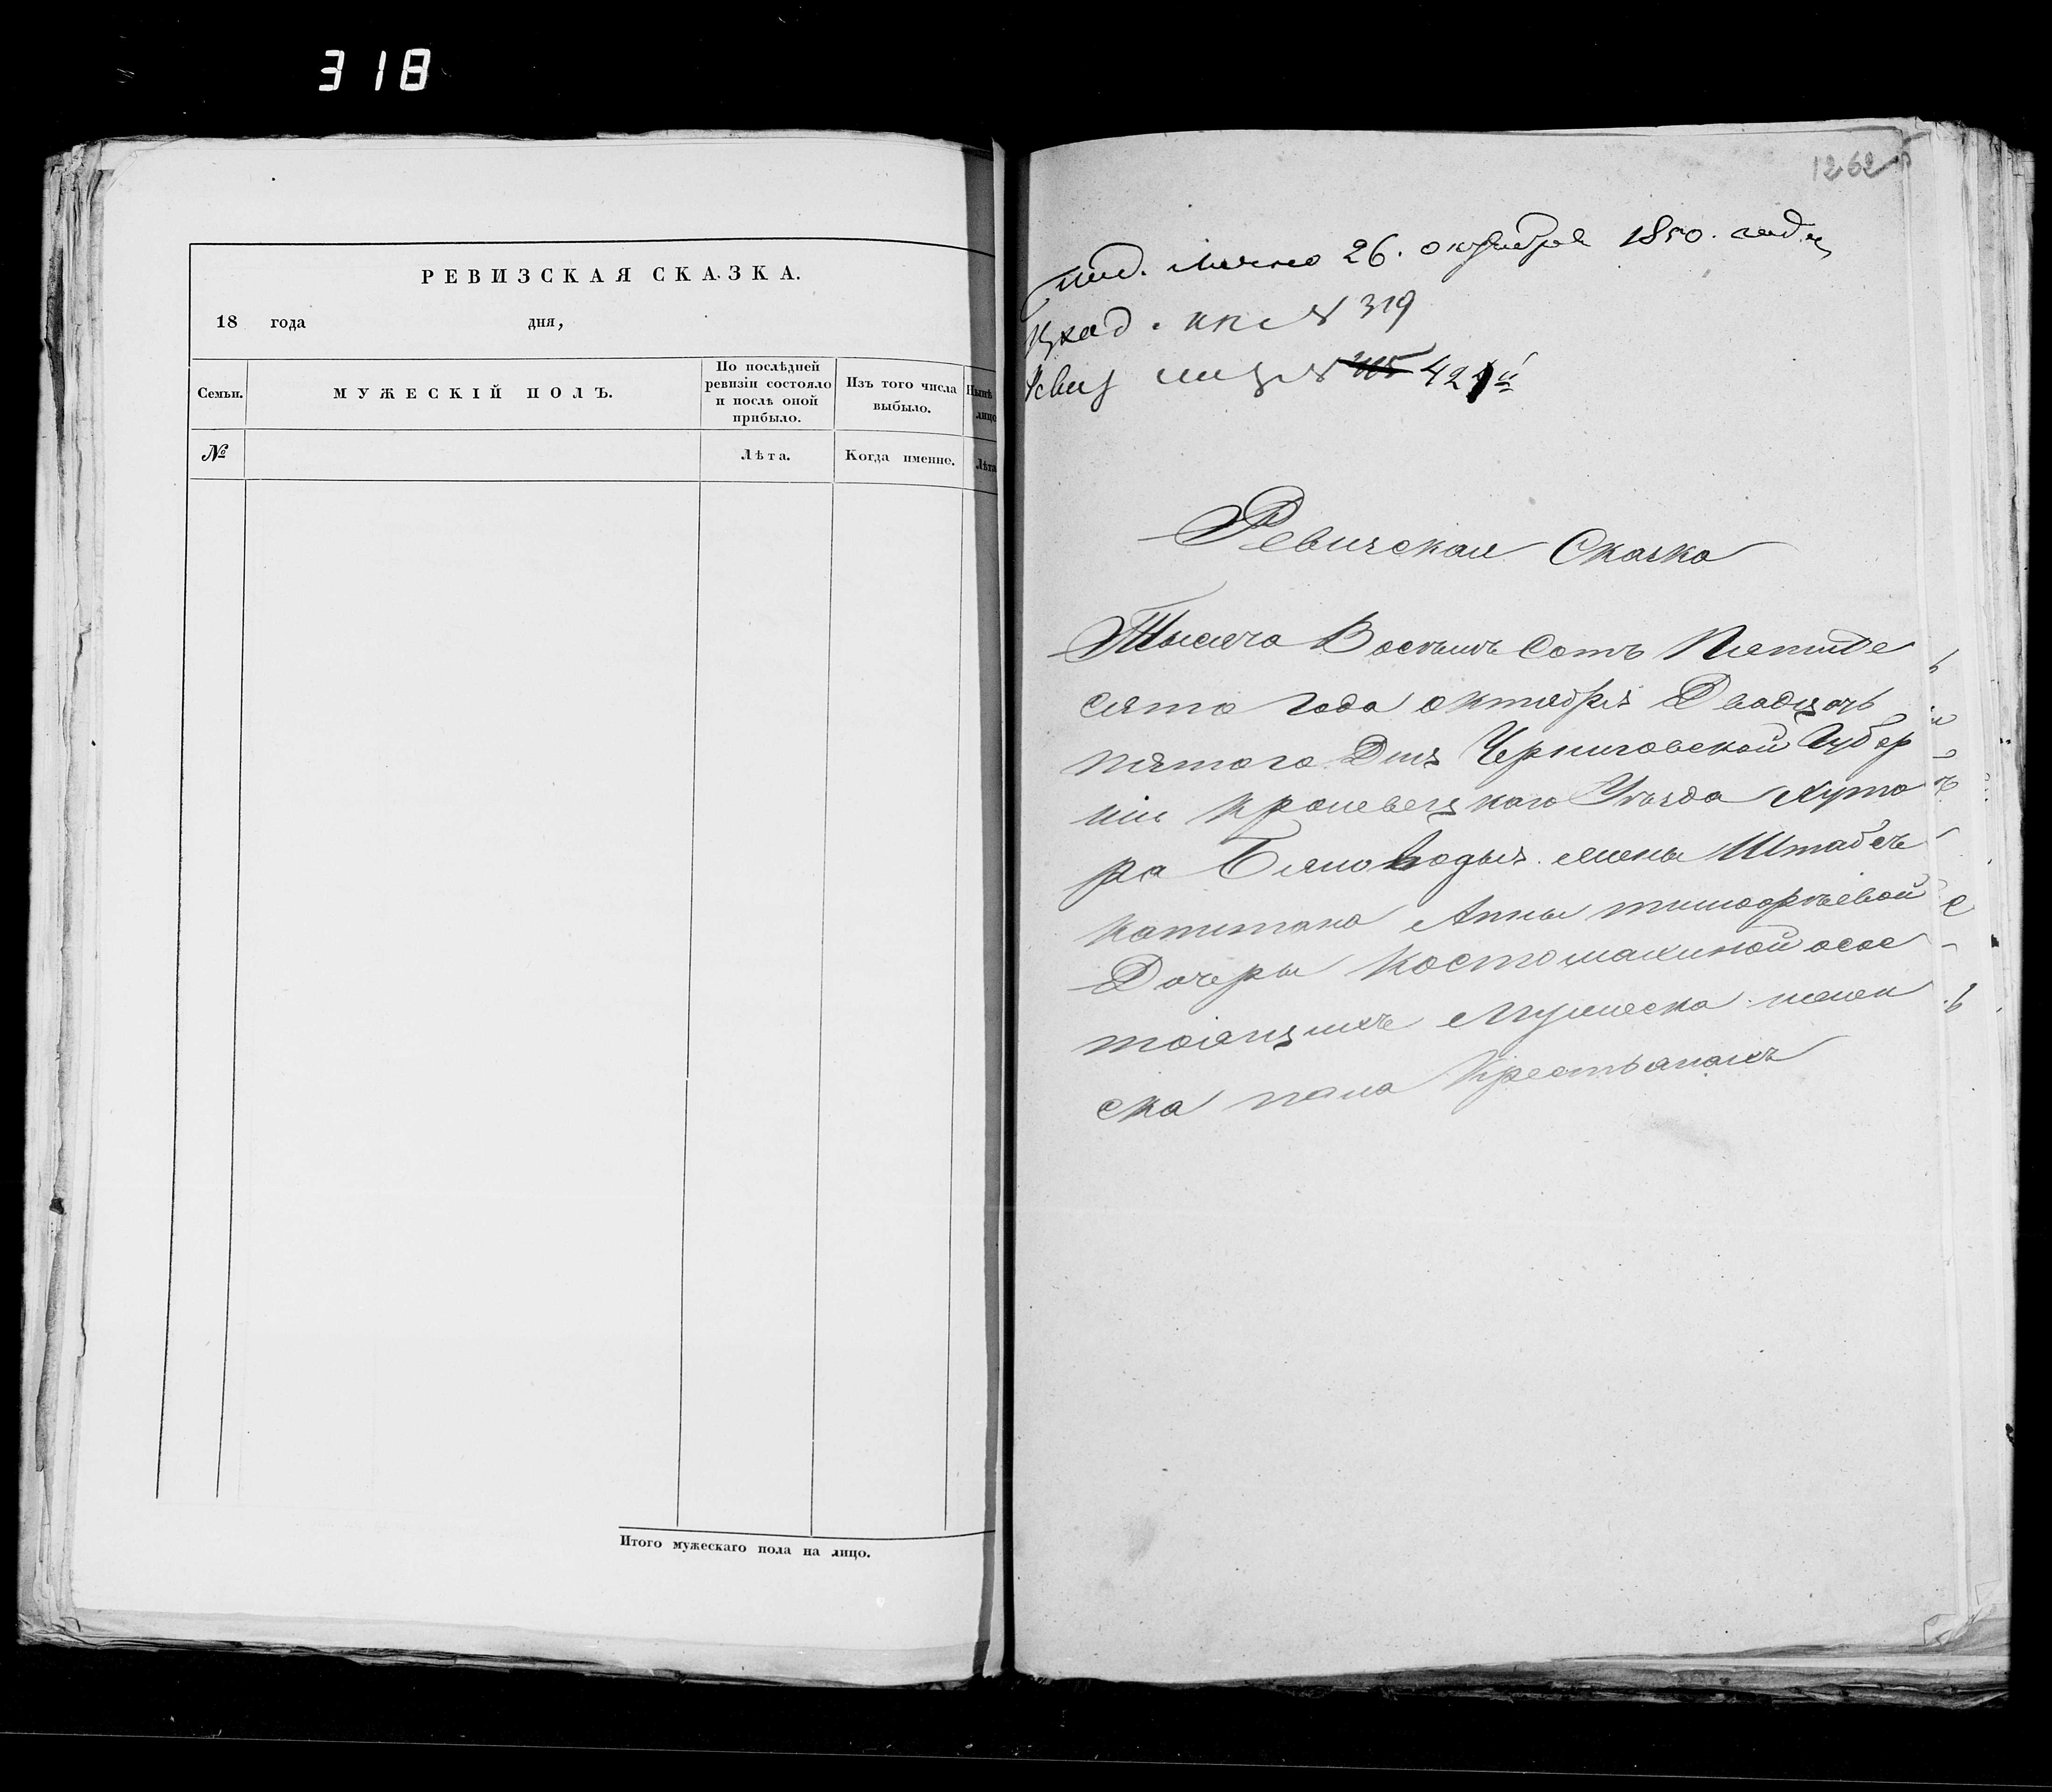 318
РЕВИЗСКАЯ СКАЗКА.
18 года дня,
Семьи.
МУЖЕСКІЙ ПОЛЪ.
По послѣдней
ревизіи состояло
и послѣ оной
прибыло.
Изъ того числа
выбыло.
Нынѣ
лицо
№
Лѣта.
Когда именно.
Лѣта
Итого мужескаго пола на лицо.
1262
Под. лично 26. октября 1850. года
Вход. № 319
Ревиз № 421й
Ревизская Сказка
Тысяча Восемь Сотъ Пятиде
сято года октября Двадцоть
пятого Дня Черниговской Губер
ніи Кролевецкого Уезда Хуто
ра жены Штабсъ
капитана Анны тимофѣевой
Дочеры Костомахиной осос
тоящихъ Мужеска женск
ска пола Крестьянахъ